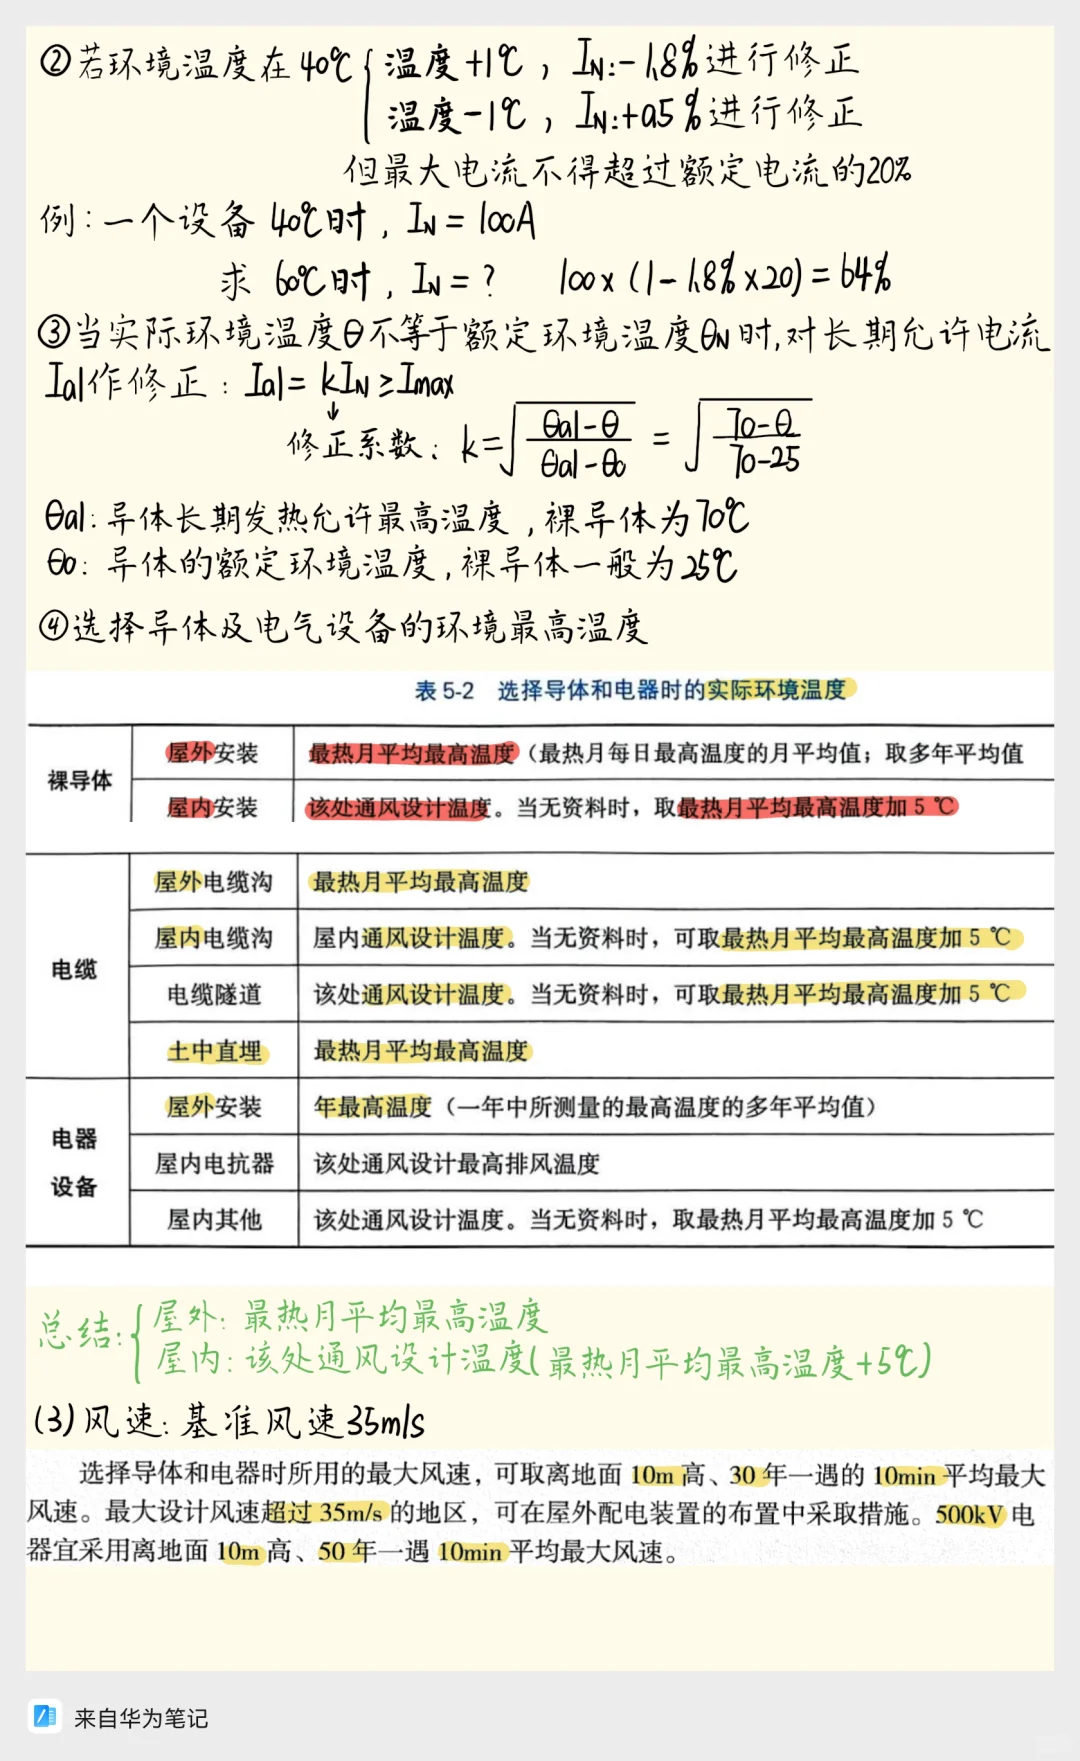 ②若环境温度在40℃{温度+1℃，IN:-1.8%进行修正
温度-1℃，IN:+0.5%进行修正
但最大电流不得超过额定电流的20%
例：一个设备40℃时，IN=100A
求 60℃时，IN=？ 100×(1-1.8%×20)=64%
③当实际环境温度θ不等于额定环境温度θN时,对长期允许电流
Ial作修正：Ial=kIN≥Imax
↓
修正系数：k=√(θal-θ/θal-θ0)=√(70-θ/70-25)
θal:导体长期发热允许最高温度,裸导体为70℃
θ0:导体的额定环境温度,裸导体一般为25℃
④选择导体及电气设备的环境最高温度
表 5-2 选择导体和电器时的实际环境温度
裸导体
屋外安装 最热月平均最高温度（最热月每日最高温度的月平均值；取多年平均值
屋内安装 该处通风设计温度。当无资料时，取最热月平均最高温度加 5 ℃
电缆
屋外电缆沟 最热月平均最高温度
屋内电缆沟 屋内通风设计温度。当无资料时，可取最热月平均最高温度加 5 ℃
电缆隧道 该处通风设计温度。当无资料时，可取最热月平均最高温度加 5 ℃
土中直埋 最热月平均最高温度
电器
设备
屋外安装 年最高温度（一年中所测量的最高温度的多年平均值）
屋内电抗器 该处通风设计最高排风温度
屋内其他 该处通风设计温度。当无资料时，取最热月平均最高温度加 5 ℃
总结:{屋外:最热月平均最高温度
屋内:该处通风设计温度(最热月平均最高温度+5℃)
(3)风速:基准风速35m/s
选择导体和电器时所用的最大风速，可取离地面 10m 高、30 年一遇的 10min 平均最大
风速。最大设计风速超过 35m/s 的地区，可在屋外配电装置的布置中采取措施。500kV 电
器宜采用离地面 10m 高、50 年一遇 10min 平均最大风速。
来自华为笔记